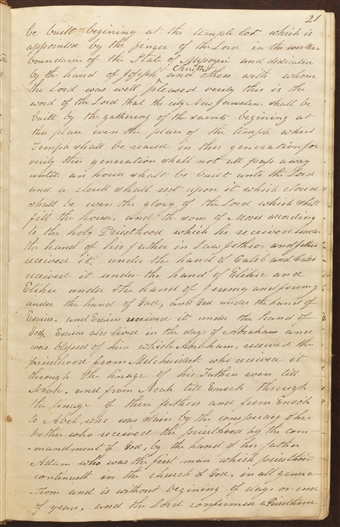 21
be built begining at the temple lot which is
appointed by the finger of the Lord in the western
boundaries of the State of Missouri and dedicated
by the hand of Joseph Smith and others with whom
the Lord was well pleased verily this is the
word of the Lord that the city New Jerusalem shall be
built by the gathering of the saints begining at
this place even the place of the temple which
Temple shall be reared in this generation for
verily this generation shall not all pass away
untill an house shall be built unto the Lord
and a cloud shall rest upon it which cloud
shall be even the glory of the Lord which shall
fill the house, and the sons of Moses according
to the holy Priesthood which he received under
the hand of his father in law Jethro and Jethro
received it under the hand of Caleb and Caleb
received it under the hand of Elihu and
Elihu under the hand of Jeremy and Jeremy
under the hand of Gad, and Gad under the hand of
Esaius, and Esaius received it under the hand of
God, Esaius also lived in the days of Abraham and
was blessed of him which Abraham, received the
priesthood from Melchisedek who received it
through the lineage of his Father even till
Noah, and from Noah till Enoch through
the lineage of there fathers and from Enoch
to Abel, who was slain by the conspiracy of his
brother who received the priesthood by the com-
mandment of God, by the hand of his father
Adam who was the first man which priesthood
continueth in the church of God, in all genera-
tions and is without begining of days or end
of years, and the Lord confirmed a Priesthood